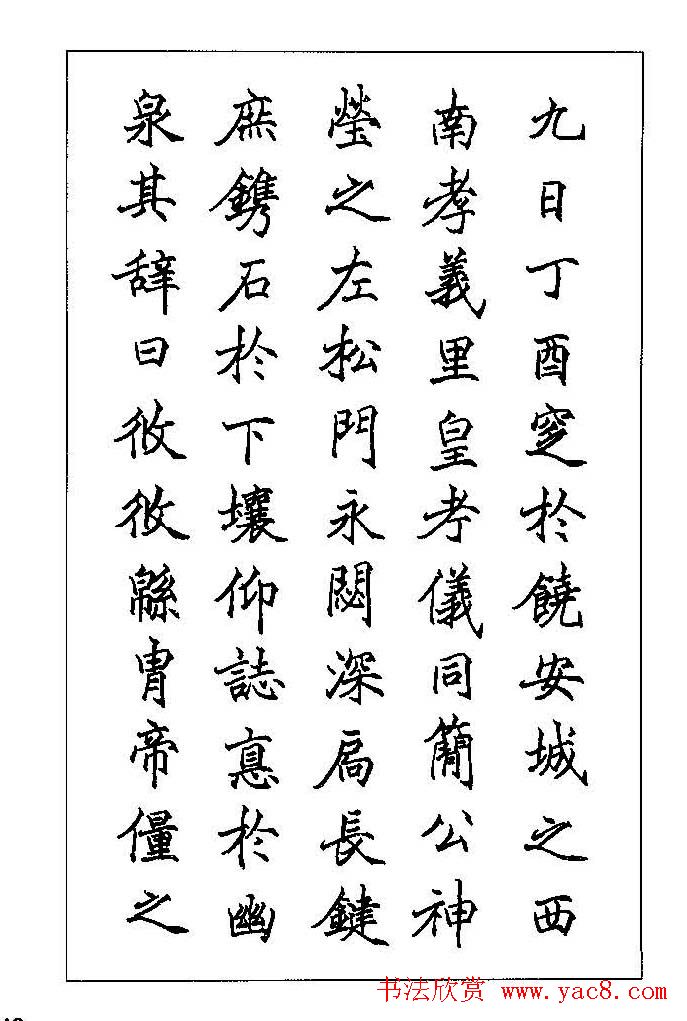 九日丁酉窆於饒安城之西
南孝義里皇考儀同簡公神
塋之左松門永閟深扃長鍵
庶鐫石於下壤仰誌悳於幽
泉其辭曰攸攸緜胄帝之
书法欣赏 www.yac8.com